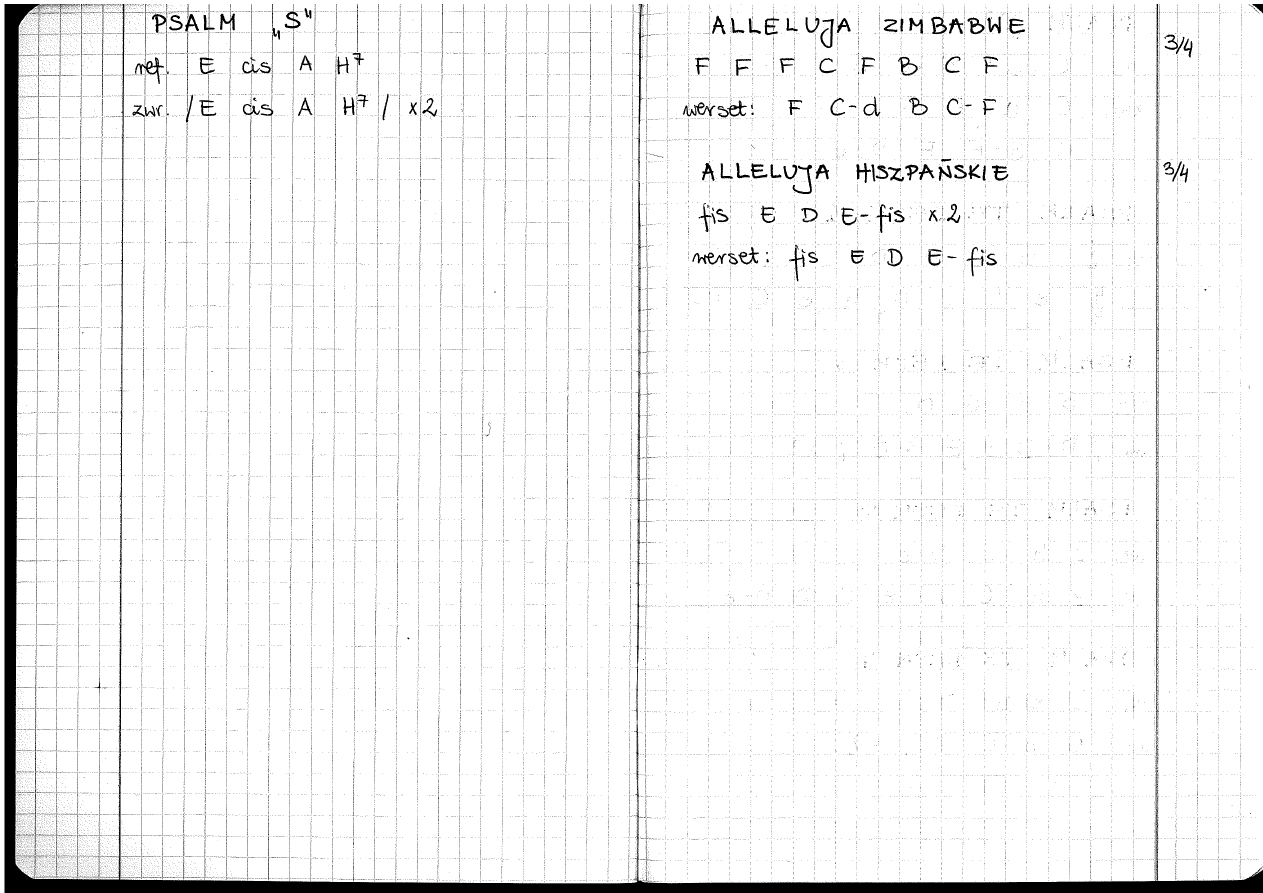 PSALM „S"
ref. E cis A H⁷
zwr. / E cis A H⁷ / x2
ALLELUJA ZIMBABWE 3/4
F F F C F B C F
werset: F C-d B C-F
ALLELUJA HISZPAŃSKIE 3/4
fis E D E-fis x2
werset: fis E D E-fis